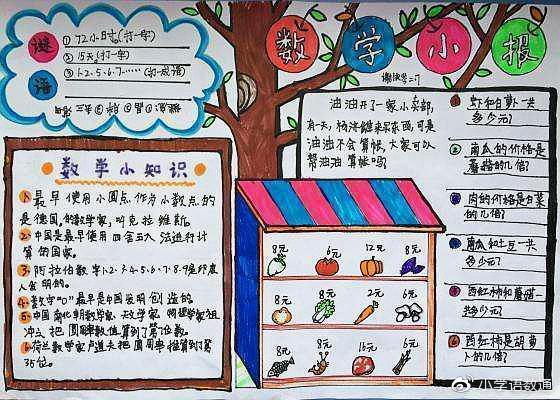 数学小报
谜语
① 72小时(打一字)
② 15天(打一字)
③ 1.2.5.6.7……(打一成语)
数学小知识
1. 最早使用小圆点作为小数点的
是德国的数学家,叫克拉维斯。
2. 中国是最早使用四舍五入法进行计
算的国家。
3. 阿拉伯数字1.2.3.4.5.6.7.8.9是印度
人发明的。
4. 数字“0”最早是中国发明创造的。
5. 中国南北朝数学家、天文学家、物理学家祖
冲之把圆周率值算到了第七位数。
6. 荷兰数学家卢道夫把圆周率推算到了第
35位。
油油开了一家小卖部,
有一天,
来买东西,可是
油油不会算帐,大家可以
帮油油算帐吗?
8元 6元 12元 8元
8元 8元 2元 6元
8元 8元 16元 6元
虾和白萝卜一共
多少元?
南瓜的价格是
蘑菇的几倍?
肉的价格是白菜
的几倍?
南瓜和土豆一共
多少元?
西红柿和蘑菇一
共多少元?
西红柿是胡萝
卜的几倍?
小学语数通